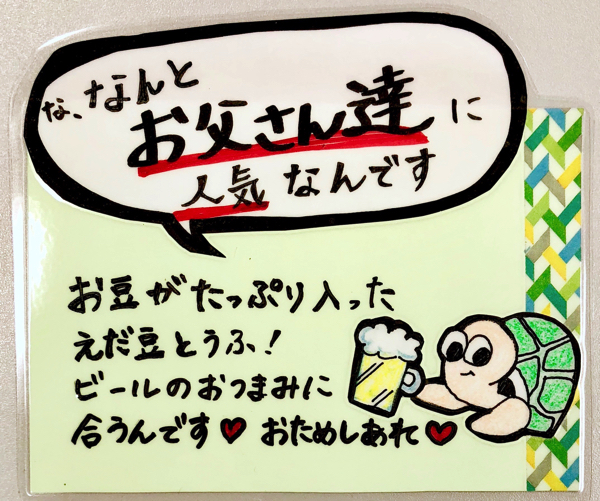 な、なんと
お父さん達に
人気なんです
お豆がたっぷり入った
えだ豆とうふ!
ビールのおつまみに
合うんです♥ おためしあれ♥